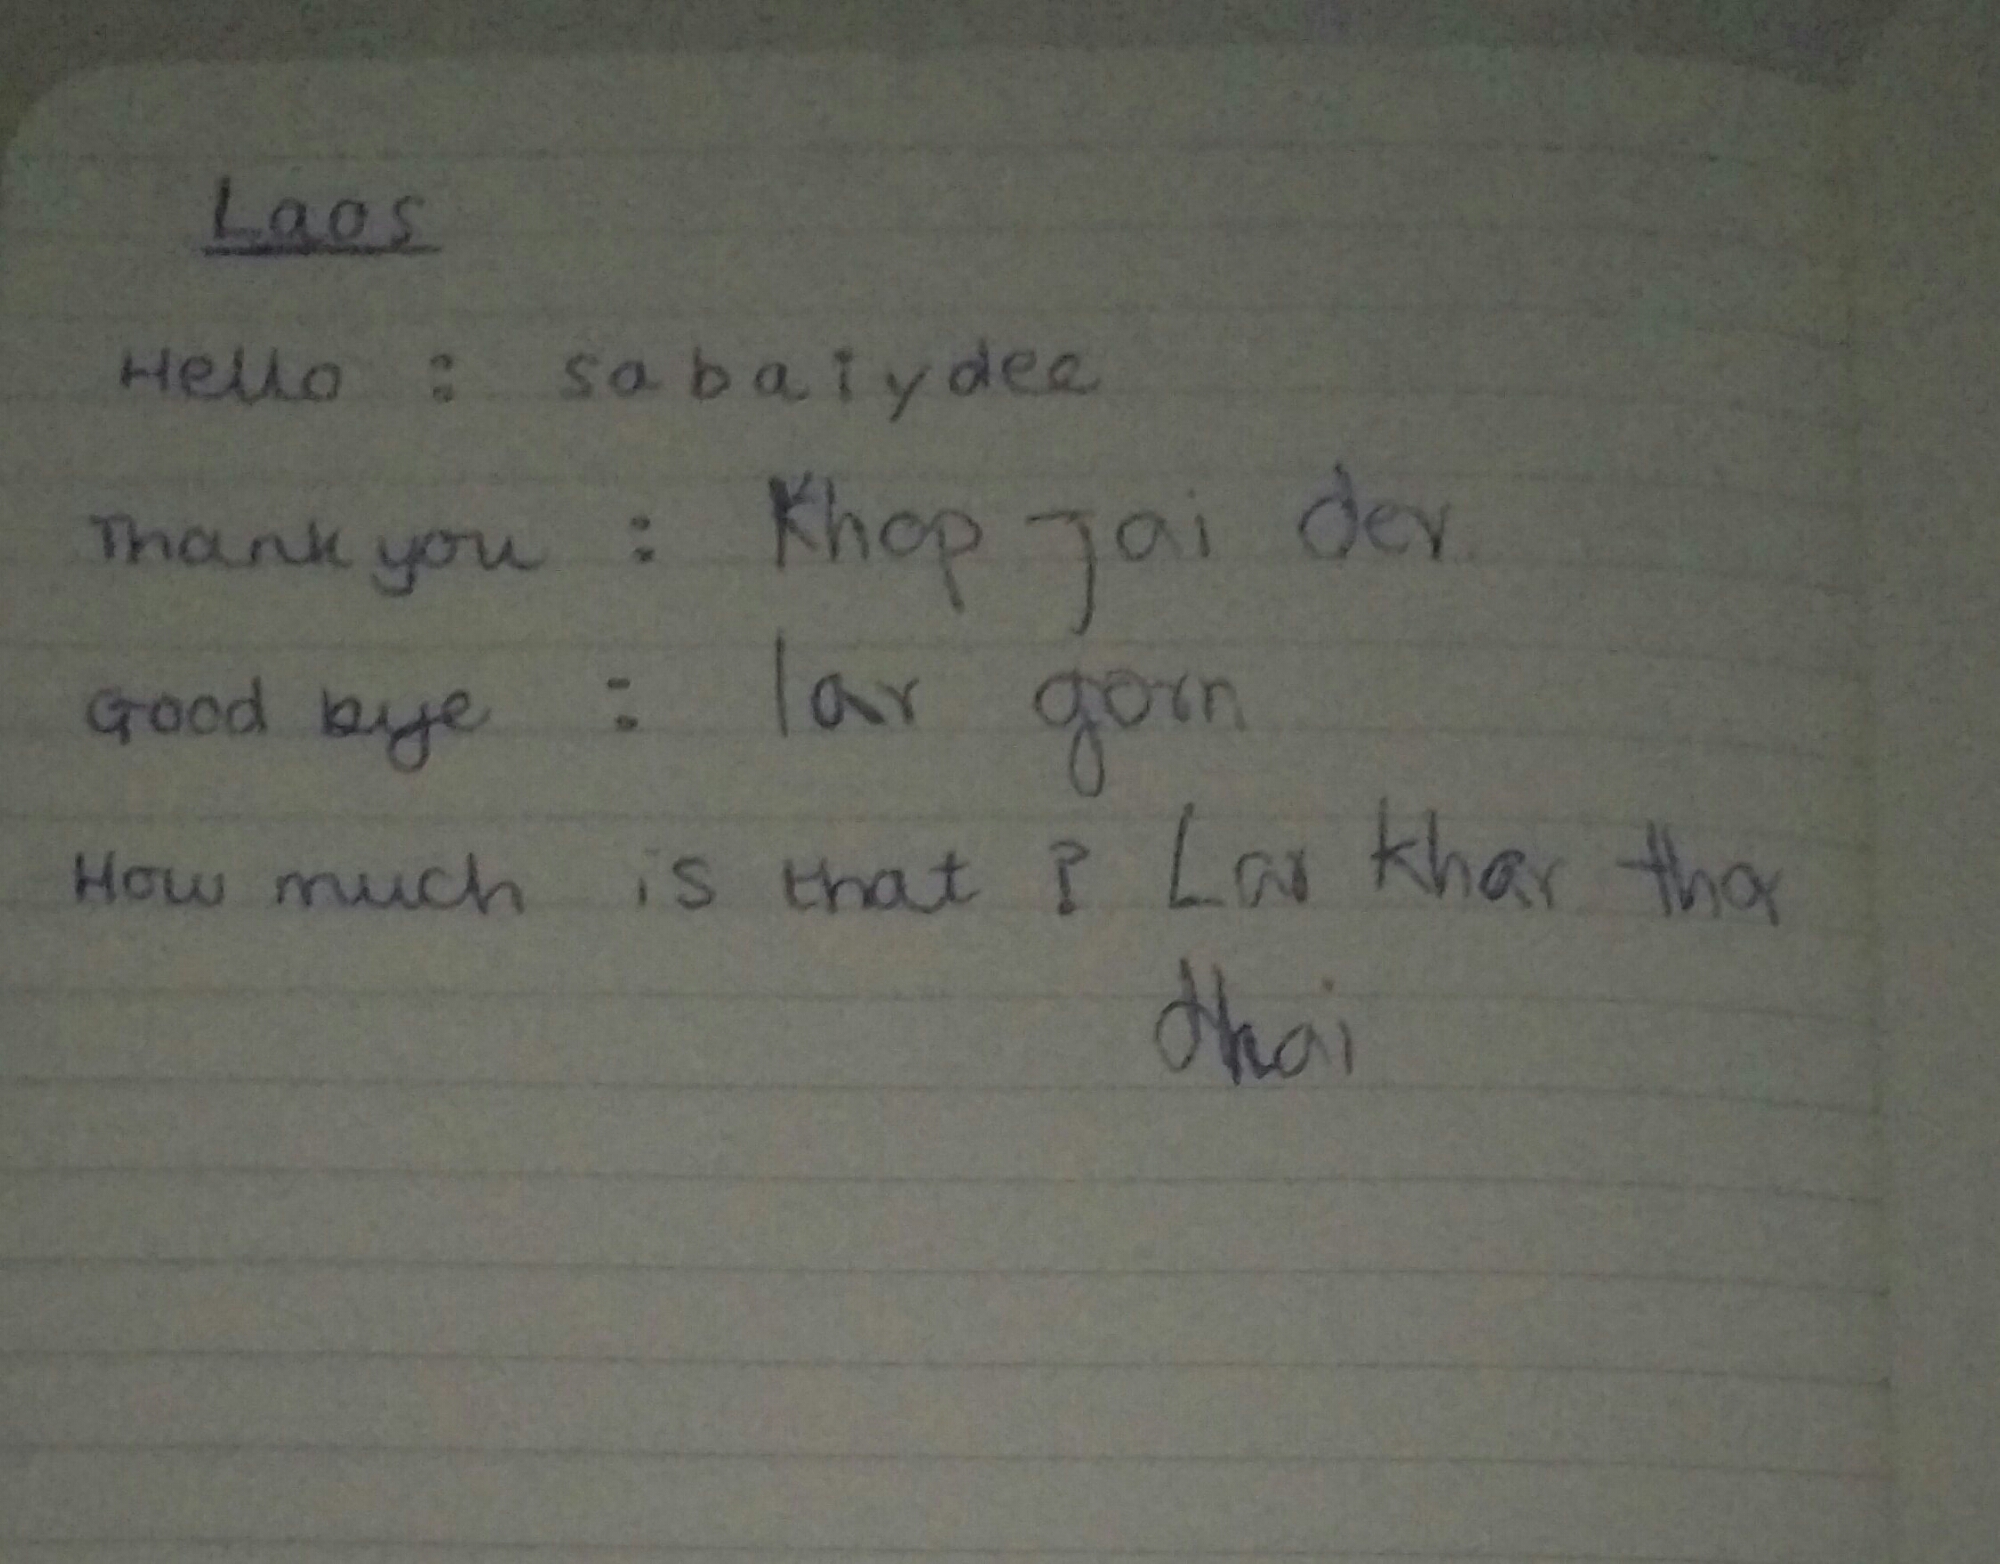 Laos
Hello : sabaiydee
Thank you : Khop jai der
Good bye : lar gorn
How much is that ? Lar khar thor
dhai